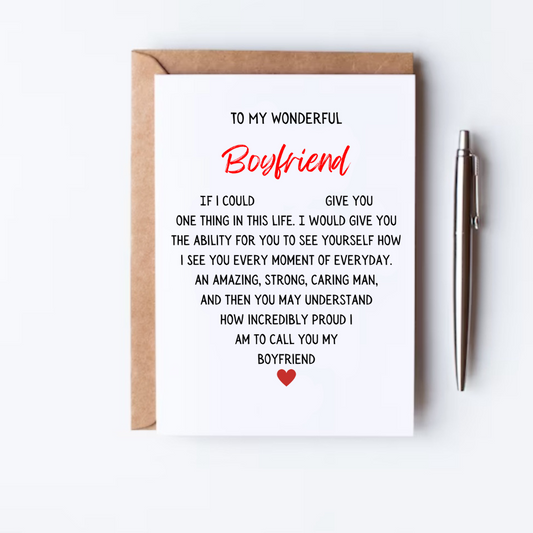 TO MY WONDERFUL
Boyfriend
IF I COULD GIVE YOU
ONE THING IN THIS LIFE. I WOULD GIVE YOU
THE ABILITY FOR YOU TO SEE YOURSELF HOW
I SEE YOU EVERY MOMENT OF EVERYDAY.
AN AMAZING, STRONG, CARING MAN,
AND THEN YOU MAY UNDERSTAND
HOW INCREDIBLY PROUD I
AM TO CALL YOU MY
BOYFRIEND